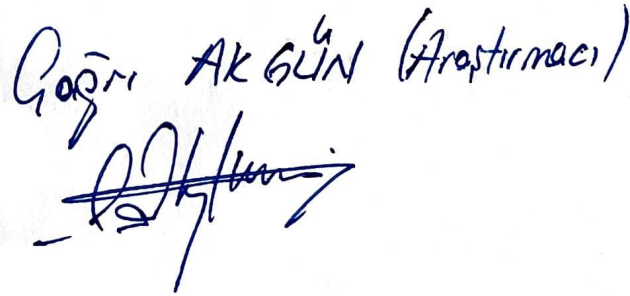 Çağrı AKGÜN (Araştırmacı)